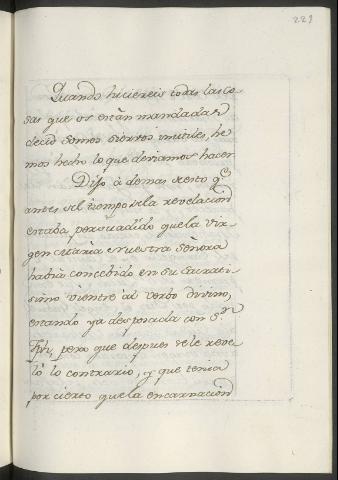 221
Quando hiciereis todas las co-
sas que os están mandadas
decid somos siervos inutiles, he
mos hecho lo que deviamos hacer
Dijo â demas desto q.e
antes del tiempo dela revelacion
estaba persuadido quela Vir-
gen Maria e nuestra Señora
habia concebido en su sacrati-
simo vientre al verbo divino,
estando ya desposada con S.n
Jph, pero que despues sele reve-
lô lo contrario, y que tenia
por cierto quela encarnacion